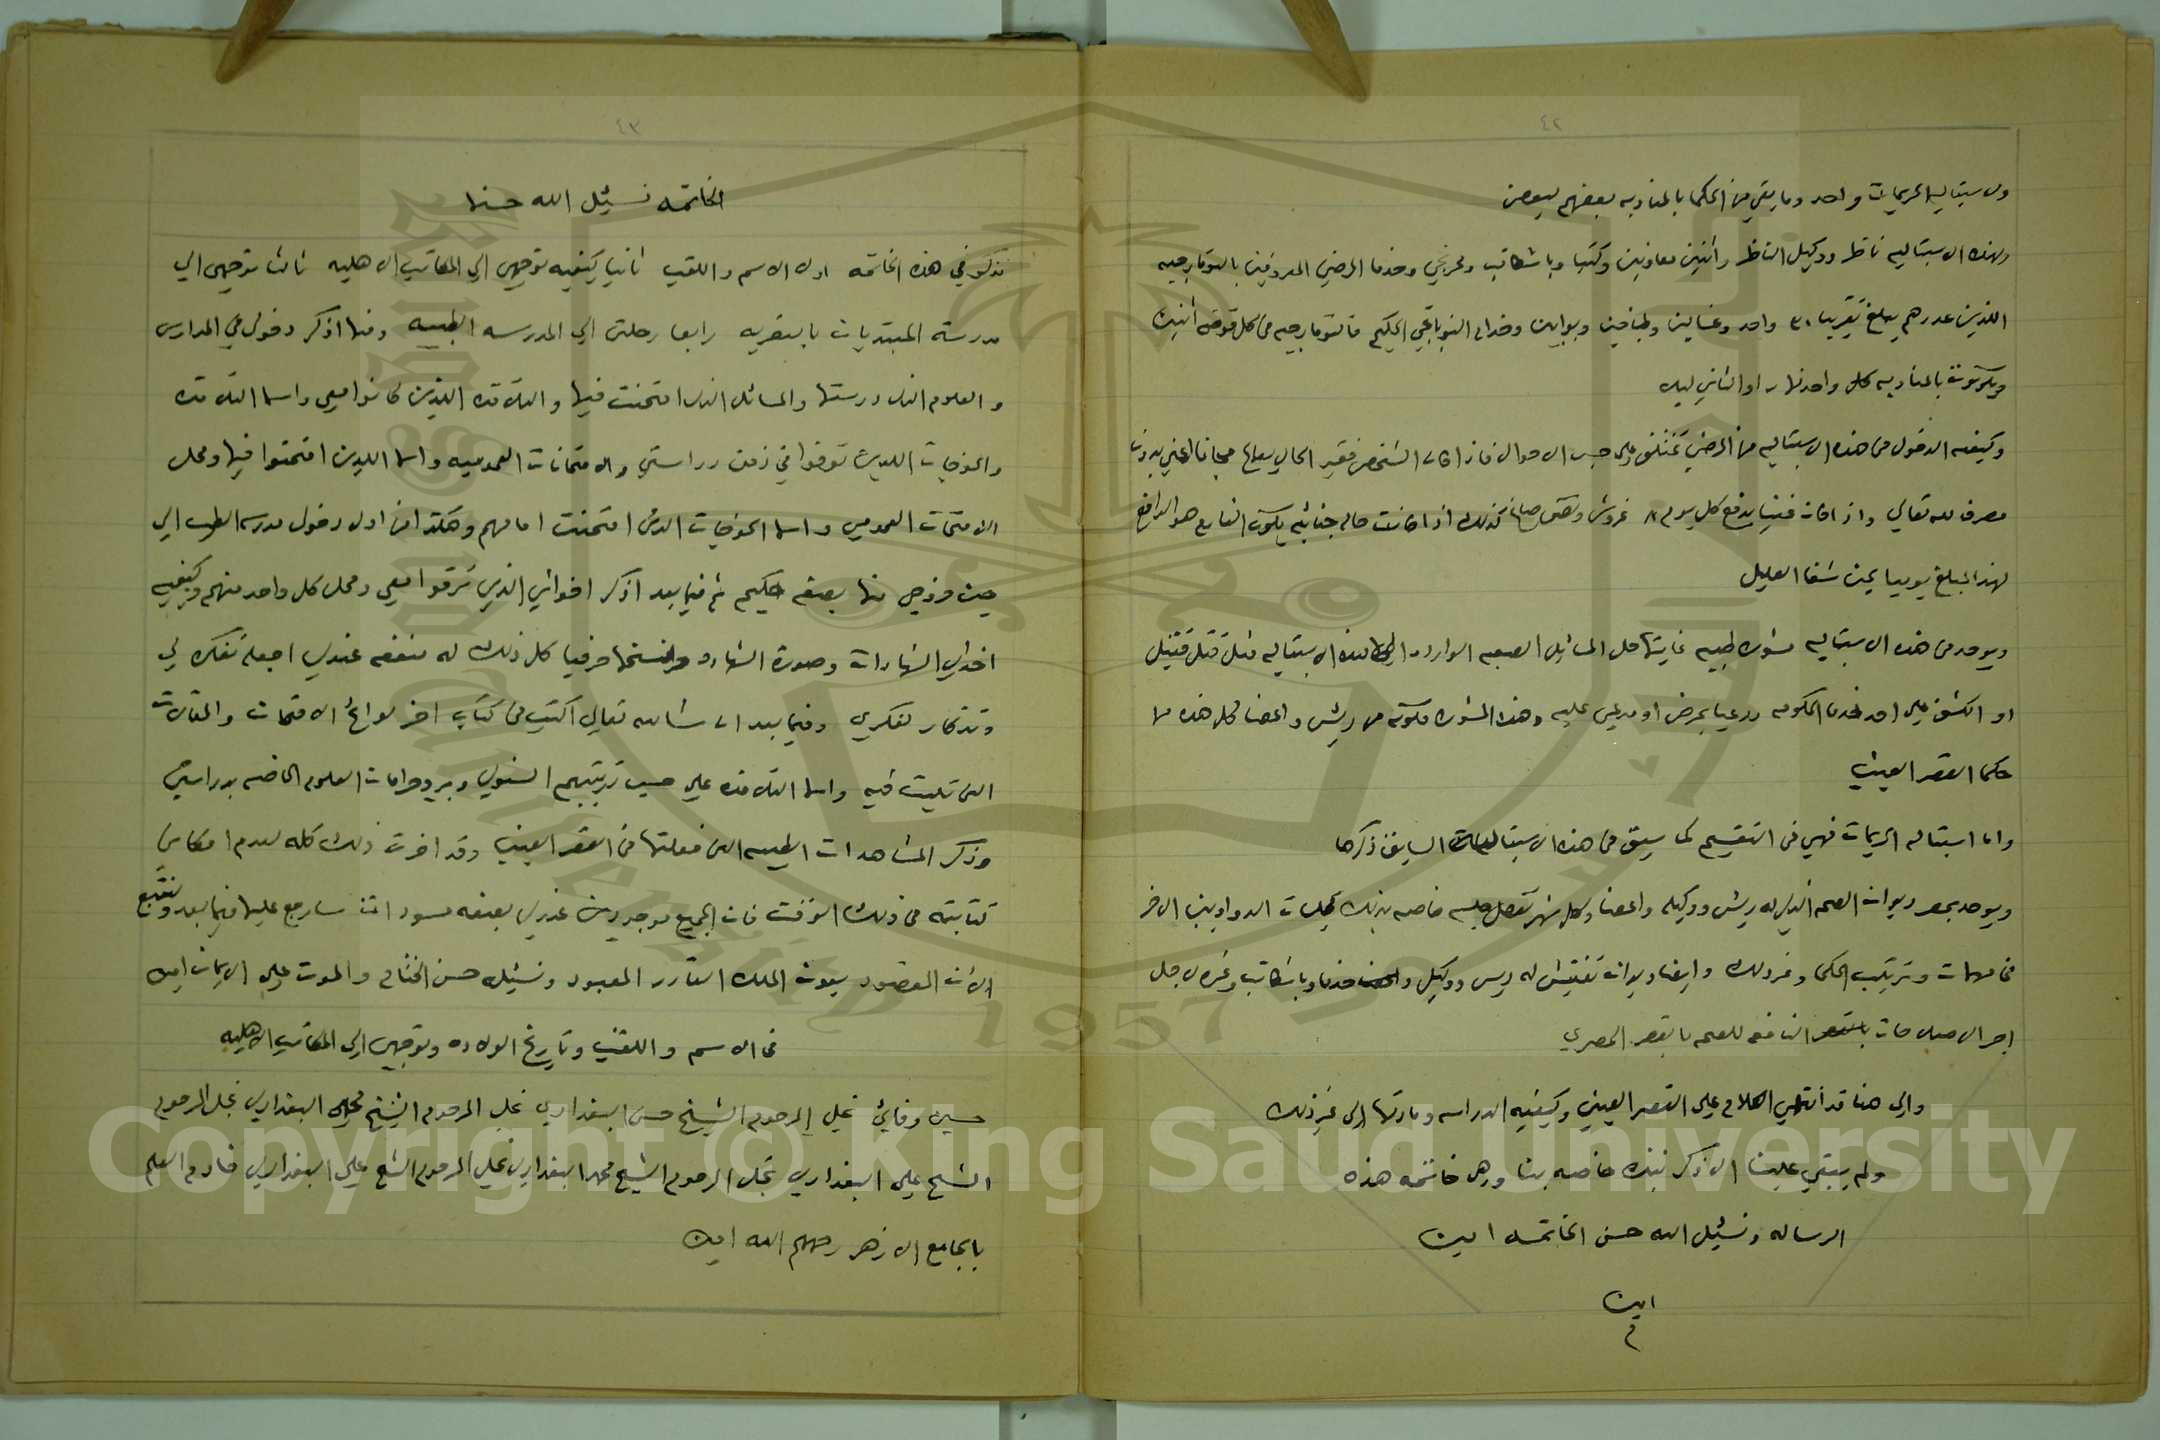 ٤٢
ولاسبتاليه الحريمات واحد وما بقي من الحكما بالمناوبه بعضهم لبعض
ولهذه الاسبتاليه ناظر ووكيل الناظر واثنين معاونين وكتبا وباشكاتب ومخزنجي وخدما المرضي المعروفين بالتومارجيه
اللذين عددهم يبلغ تقريبا ٣٠ واحد وغسالين وطباخين وبوابين وخدام النوباتجي الحكيم فالتومارجيه في كل قوغش اثنين
ويكونوت بالمناوبه كل واحد نهارا والثاني ليلا
وكيفيه الدخول في هذه الاسبتاليه من المرضي تختلف علي حسب الاحوال فاذا كان الشخص فقير الحال يعالج مجانا اعني بدون
مصرف لله تعالي واذا كان غنيا يدفع كل يوم ٨ غروش ونصف صاغ كذلك اذا كانت حاله جنائيه يكون الفاعل هو الدافع
لهذا المبلغ يوميا لحين شفا العليل
ويوجد في هذه الاسبتاليه مشوره طبيه غايتها حل المسائل الصعبه الوارده الي هذه الاسبتاليه مثل قتل قتيل
او الكشف علي احد خدما الحكومه مدعيا بمرض او مدعي عليه وهذه المشوره مكونه من ريئس واعضا وكل هذه من
حكما القصر العيني
واما اسبتاليه الحريمات فهي في التقسيم كما سبق في هذه الاسبتاليه السابق ذكرها
ويوجد بمصر ديوان الصحه الذي له ريئس ووكيله واعضا وكل شهر تحصل جلسه خاصه بذلك كجلسات الدواوين الاخر
في مهمات وترتيب الحكما وغير ذلك وايضا ديوان تفتيش له ريس ووكيل وخدما وباشكاتب وغيره لاجل
اجرا الاصلاحات النافعه للصحه بالقطر المصري
والي هنا قد انتهي الكلام علي القصر العيني وكيفيه الدراسه ومادتها الي غير ذلك
ولم يبقي علينا الا ذكر نبذه خاصه بنا وهي خاتمه هذه
الرساله ونسئيل الله حسن الخاتمه امين
امين
م
٤٣
الخاتمه نسئيل الله حسنها
نذكر في هذه الخاتمه اولا الاسم واللقب ثانيا كيفيه توجهي الي المكاتب الاهليه ثالثا توجهي الي
مدرسة المبتديات بالناصريه رابعا رحلتي الي المدرسه الطبيه وفيها اذكر دخولي في المدارس
والعلوم التي درستها والمسائل التي امتحنت فيها والتلامذه اللذين كانوا معي واسما التلامذه
والخوجات اللذين توفوا في زمن دراستي والامتحانات العموميه واسما اللذين امتحنوا فيها ومحل
الامتحان العمومي واسما الخوجات الذين امتحنت امامهم وهكذا من اول دخول مدرسة الطب الي
حين خروجي منها بصفه حكيم ثم فيما بعد اذكر اخواني الذين ترقوا معي ومحل كل واحد منهم وكيفيه
اخذي الشهادات وصورة الشهاده ونسخها حرفيا كل ذلك له منفعه عندي اجعله تفكره لي
وتذكار لفكري وفيما بعد ان شالله تعالي اكتب في كتاب اخر لوائح الامتحانات والمقالات
التي تليت فيه واسما التلامذه علي حسب ترتيبهم السنوي وبروجرامات العلوم الخاصه بدراستي
وذكر المشاهدات الطبيه التي فعلتها في القصر العيني وقد اخرت ذلك كله لعدم امكاني
كتابته في ذلك الوقت فان الجميع موجودين عندي بصفه مسودات سارجع عليها فيما بعد ونتبع
الان المقصود بعون الملك القادر المعبود ونسئيله حسن الختام والموت علي الايمان امين
في الاسم واللقب وتاريخ الولاده وتوجهي الي المكاتب الاهليه
حسين وفائي نجل المرحوم الشيخ حسن البغدادي نجل المرحوم الشيخ محمد البغدادي نجل المرحوم
الشيخ علي البغدادي نجل المرحوم الشيخ محمد البغدادي نجل المرحوم الشيخ علي البغدادي خادم العلم
بالجامع الازهر رحمهم الله امين
Copyright © King Saud University
King Saud University
1957